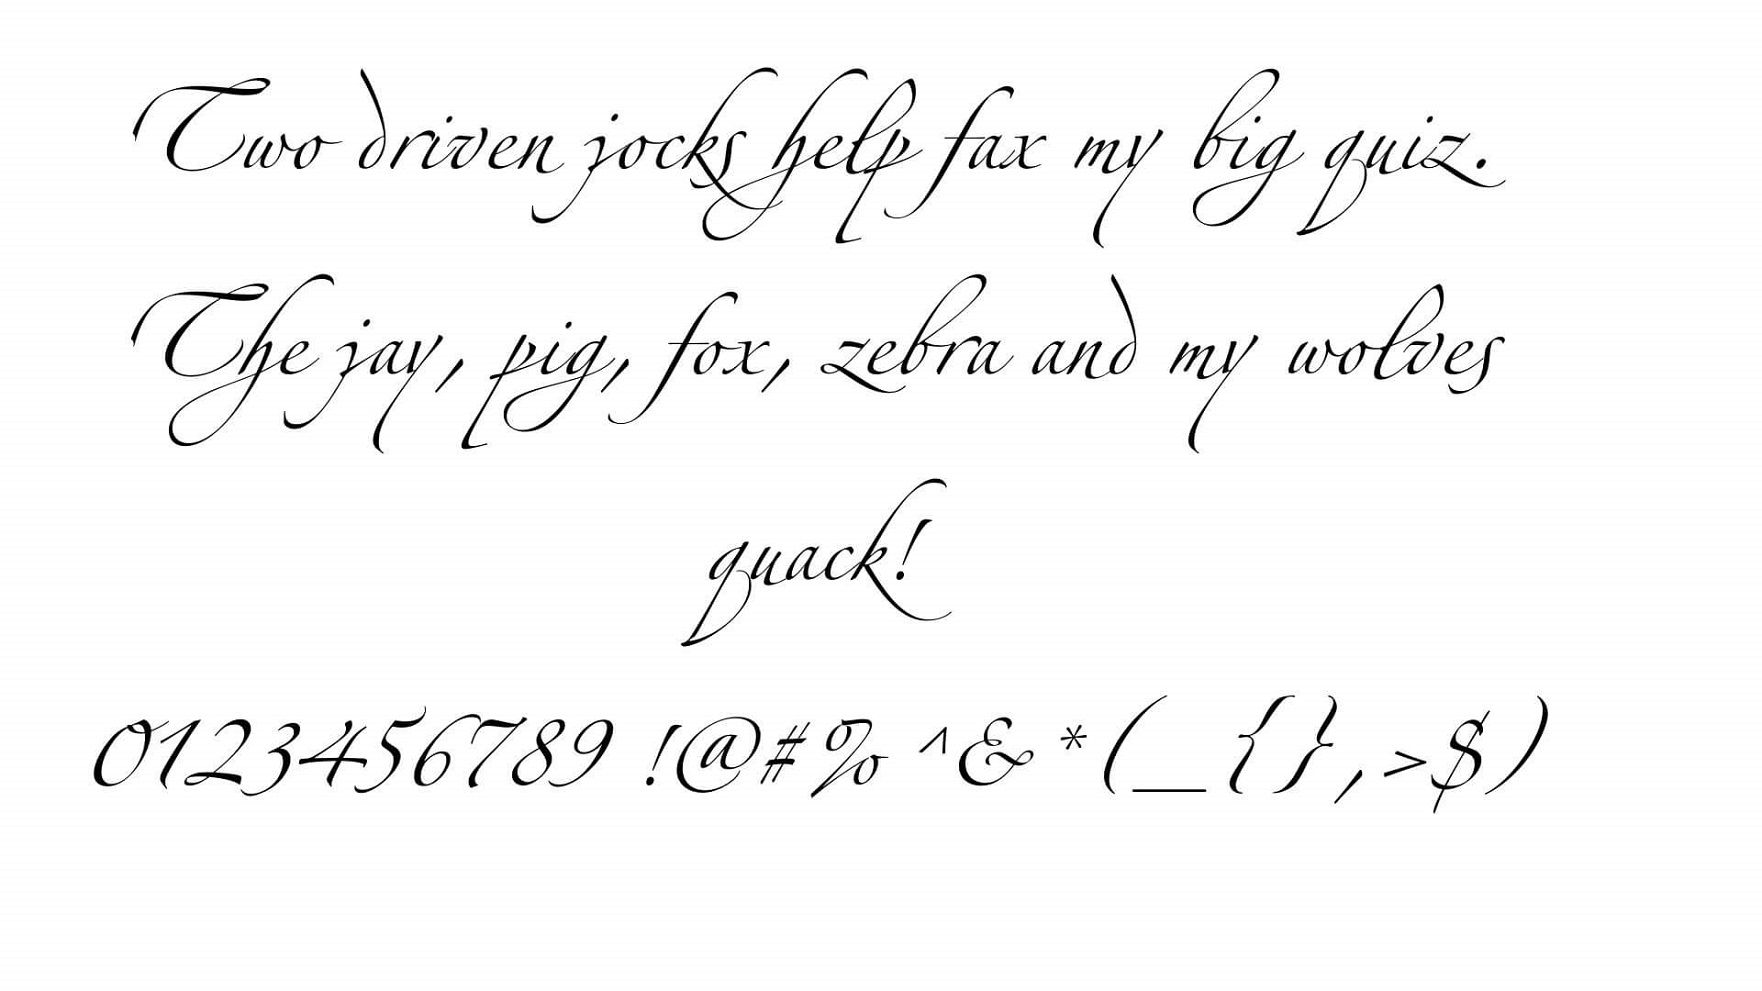 Two driven jocks help fax my big quiz.
The jay, pig, fox, zebra and my wolves
quack!
0123456789 !@#% ^& *(_{},>$)